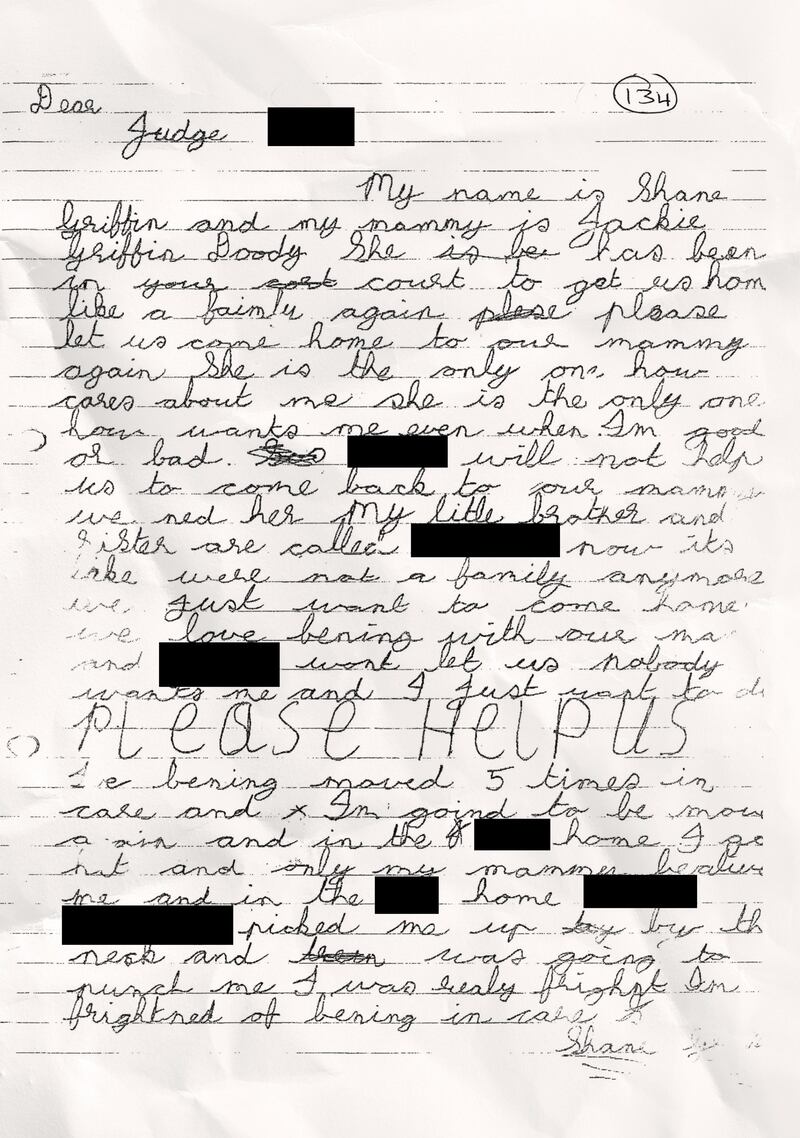 134
Dear
Judge
My name is Shane
Griffin and my mammy is Jackie
Griffin Doody She is be has been
in your cort court to get us hom
like a faimly again plese please
let us come home to our mammy
again She is the only one how
cares about me she is the only one
how wants me even when Im good
or bad. will not help
us to come back to our mammy
we ned her My litle brother and
sister are called now its
like were not a family anymore
we Just want to come home
we love bening with our ma
and wont let us nobody
wants me and I Just want to di
PLeaSe HelP US
I'e bening moved 5 times in
care and x Im going to be mov
a ain and in the home I go
hit and only my mammy
me and in the home
picked me up by by th
neck and was going to
punch me I was realy frighnt Im
frightned of bening in care
Shane